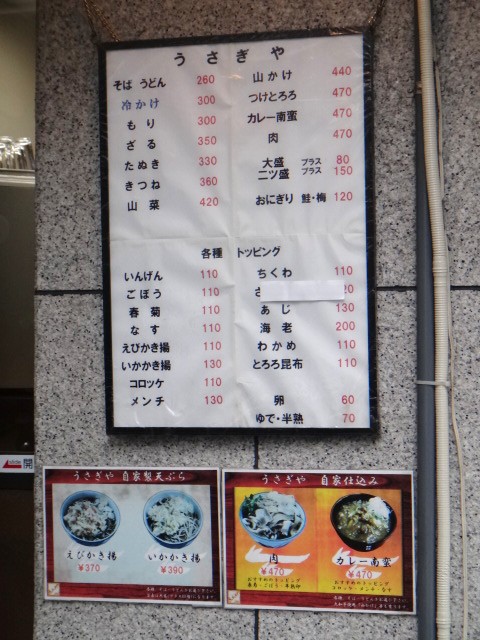 うさぎや
そば うどん 260
冷かけ 300
もり 300
ざる 350
たぬき 330
きつね 360
山菜 420
山かけ 440
つけとろろ 470
カレー南蛮 470
肉 470
大盛 プラス 80
二ツ盛 プラス 150
おにぎり 鮭・梅 120
各種 トッピング
いんげん 110
ごぼう 110
春菊 110
なす 110
えびかき揚 110
いかかき揚 130
コロッケ 110
メンチ 130
ちくわ 110
さ 20
あじ 130
海老 200
わかめ 110
とろろ昆布 110
卵 60
ゆで・半熟 70
開
うさぎや 自家製天ぷら
えびかき揚 いかかき揚
¥370 ¥390
うさぎや 自家仕込み
肉 カレー南蛮
¥470 ¥470
おすすめのトッピング
春菊・ごぼう・半熟卵
おすすめのトッピング
コロッケ・メンチ・なす